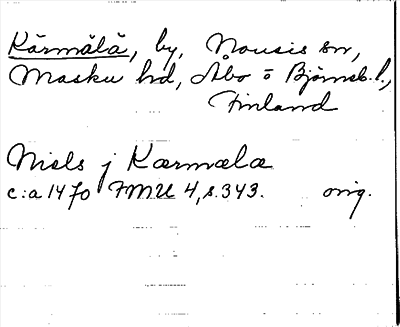 Kärmälä, by, Nousis sn,
Masku hd, Åbo o Björneb. l.,
Finland
Niels j Karmala
c:a 1470 FMU 4, s. 343. orig.